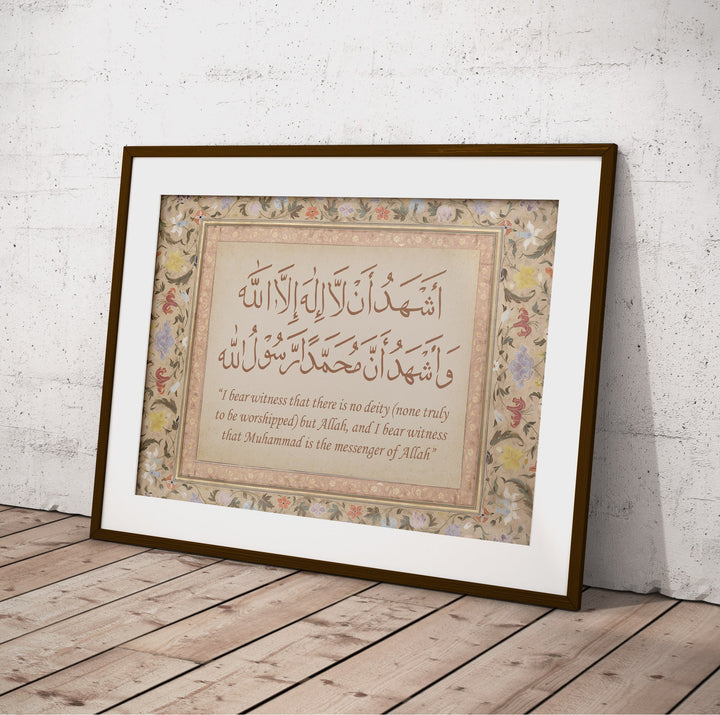 أَشْهَدُ أَنْ لَّا إِلٰهَ إِلَّا اللّٰه
وَأَشْهَدُ أَنَّ مُحَمَّدًا رَّسُوْلُ اللّٰه
“I bear witness that there is no deity (none truly
to be worshipped) but Allah, and I bear witness
that Muhammad is the messenger of Allah”